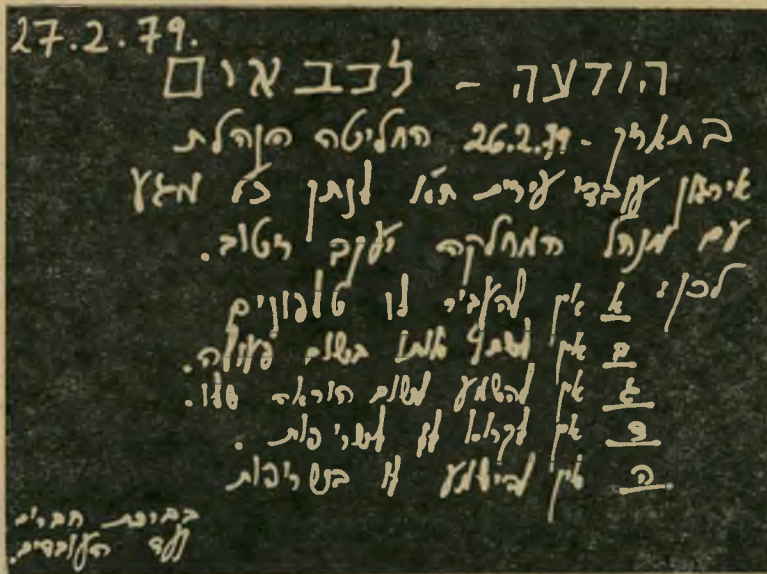 27.2.79.
הודעה - לכבאים
בתאריך - 26.2.79 החליטה הנהלת
איגון עובדי עירית ת"א לנתק כל מגע
עם מנהל המחלקה יעקב רטוב.
לכן: א אין להעביר לו טלפונים
ב אין לשתף אותו בשום פעולה.
ג אין להשמע לשום הוראה שלו.
ד אין לקרוא לו לשריפות.
ה אין להישמע לו בשריפות
בברכת חברים
ועד העובדים.